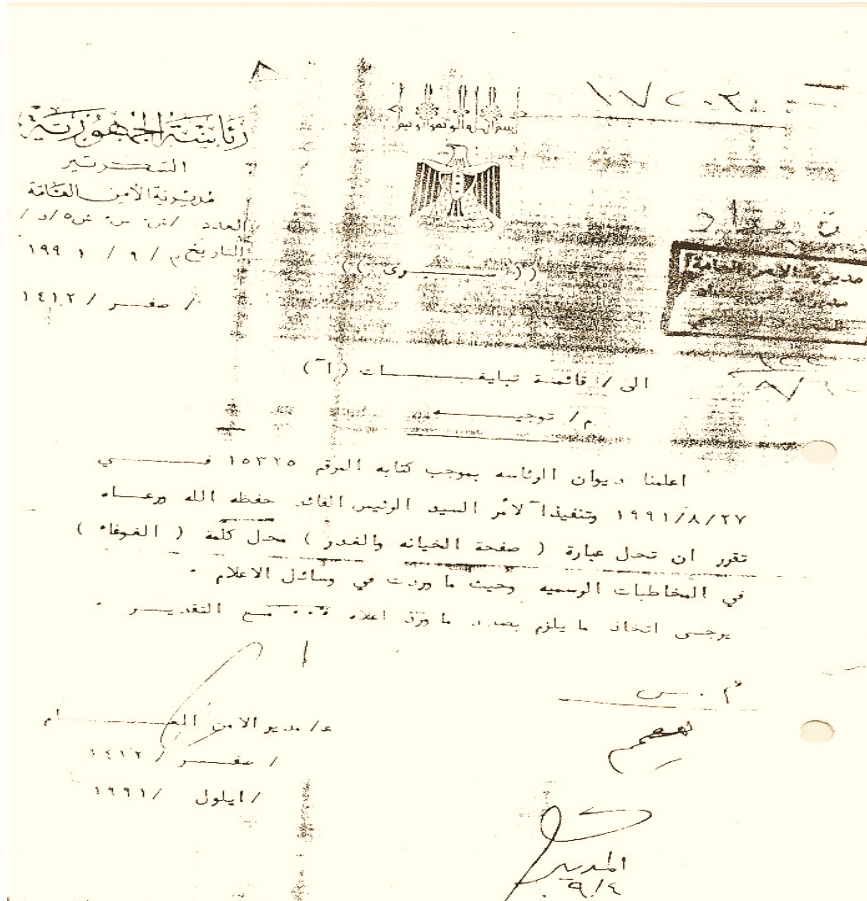 بسم الله الرحمن الرحيم
رئاسة الجمهورية
السكرتير
مديرية الأمن العامة
العدد / ش.س: ش٥/د/
التاريخ م/ ٩ / ١٩٩١
/ صفر / ١٤١٢
مديرية الامن العامة
الى / قائمة تبليغات (آ)
م/ توجيه
اعلمنا ديوان الرئاسه بموجب كتابه المرقم ١٥٣٢٥ في
١٩٩١/٨/٢٧ وتنفيذا لامر السيد الرئيس القائد حفظه الله ورعاه
تقرر ان تحل عبارة ( صفحة الخيانه والغدر ) محل كلمة ( الغوغاء )
في المخاطبات الرسميه وحيث ما وردت في وسائل الاعلام .
يرجى اتخاذ ما يلزم بصدد ما ورد اعلاه ٠٠٠ مع التقدير .
أ . س
يعمم
ع/ مدير الامن العام
/ صفر / ١٤١٢
/ ايلول / ١٩٩١
المدير
٩/٤